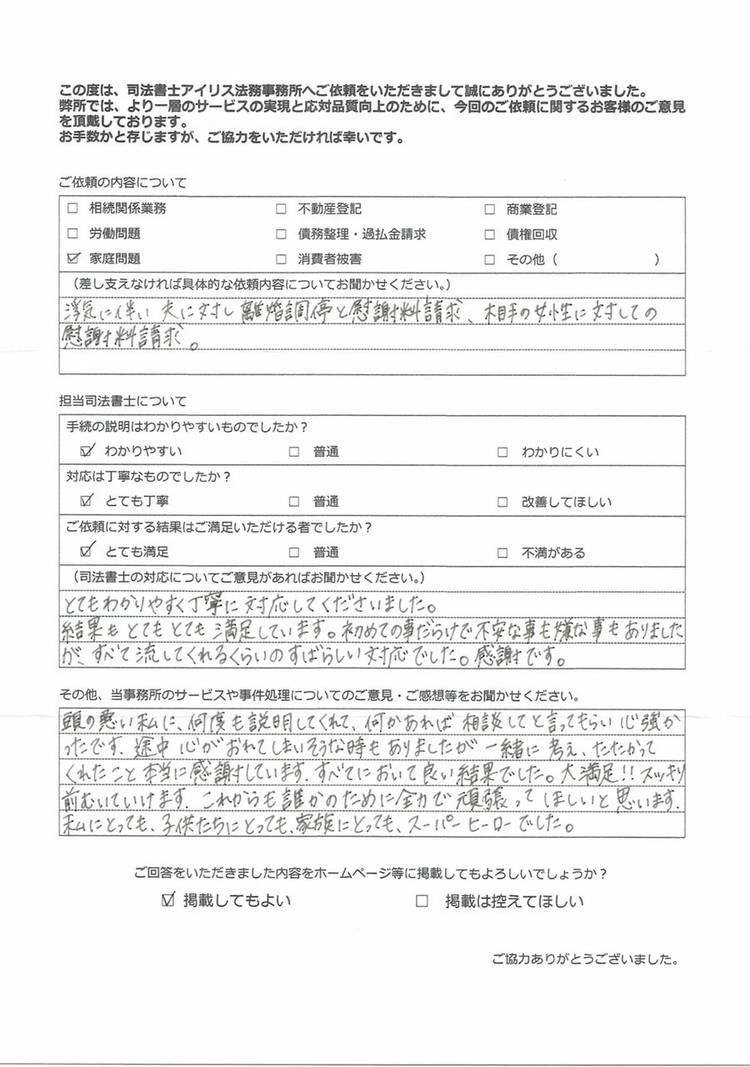 この度は、司法書士アイリス法務事務所へご依頼をいただきまして誠にありがとうございました。
弊所では、より一層のサービスの実現と応対品質向上のために、今回のご依頼に関するお客様のご意見
を頂戴しております。
お手数かと存じますが、ご協力をいただければ幸いです。
ご依頼の内容について
□ 相続関係業務 □ 不動産登記 □ 商業登記
□ 労働問題 □ 債務整理・過払金請求 □ 債権回収
☑ 家庭問題 □ 消費者被害 □ その他（ ）
（差し支えなければ具体的な依頼内容についてお聞かせください。）
浮気に伴い 夫に対し 離婚調停と慰謝料請求、相手の女性に対しての
慰謝料請求。
担当司法書士について
手続の説明はわかりやすいものでしたか？
☑ わかりやすい □ 普通 □ わかりにくい
対応は丁寧なものでしたか？
☑ とても丁寧 □ 普通 □ 改善してほしい
ご依頼に対する結果はご満足いただける者でしたか？
☑ とても満足 □ 普通 □ 不満がある
（司法書士の対応についてご意見があればお聞かせください。）
とてもわかりやすく丁寧に対応してくださいました。
結果も とても とても 満足しています。初めての事だらけで不安な事も嫌な事もありました
が、すべて流してくれるくらいのすばらしい対応でした。感謝です。
その他、当事務所のサービスや事件処理についてのご意見・ご感想等をお聞かせください。
頭の悪い私に、何度も説明してくれて、何かあれば 相談してと言ってもらい 心強か
ったです。途中 心がおれてしまいそうな時もありましたが 一緒に考え、たたかって
くれたこと 本当に感謝しています。すべてにおいて良い結果でした。大満足!! スッキリ
前むいていけます。これからも誰かのために全力で 頑張って ほしいと思います。
私にとっても、子供たちにとっても、家族にとっても、スーパーヒーローでした。
ご回答をいただきました内容をホームページ等に掲載してもよろしいでしょうか？
☑ 掲載してもよい □ 掲載は控えてほしい
ご協力ありがとうございました。